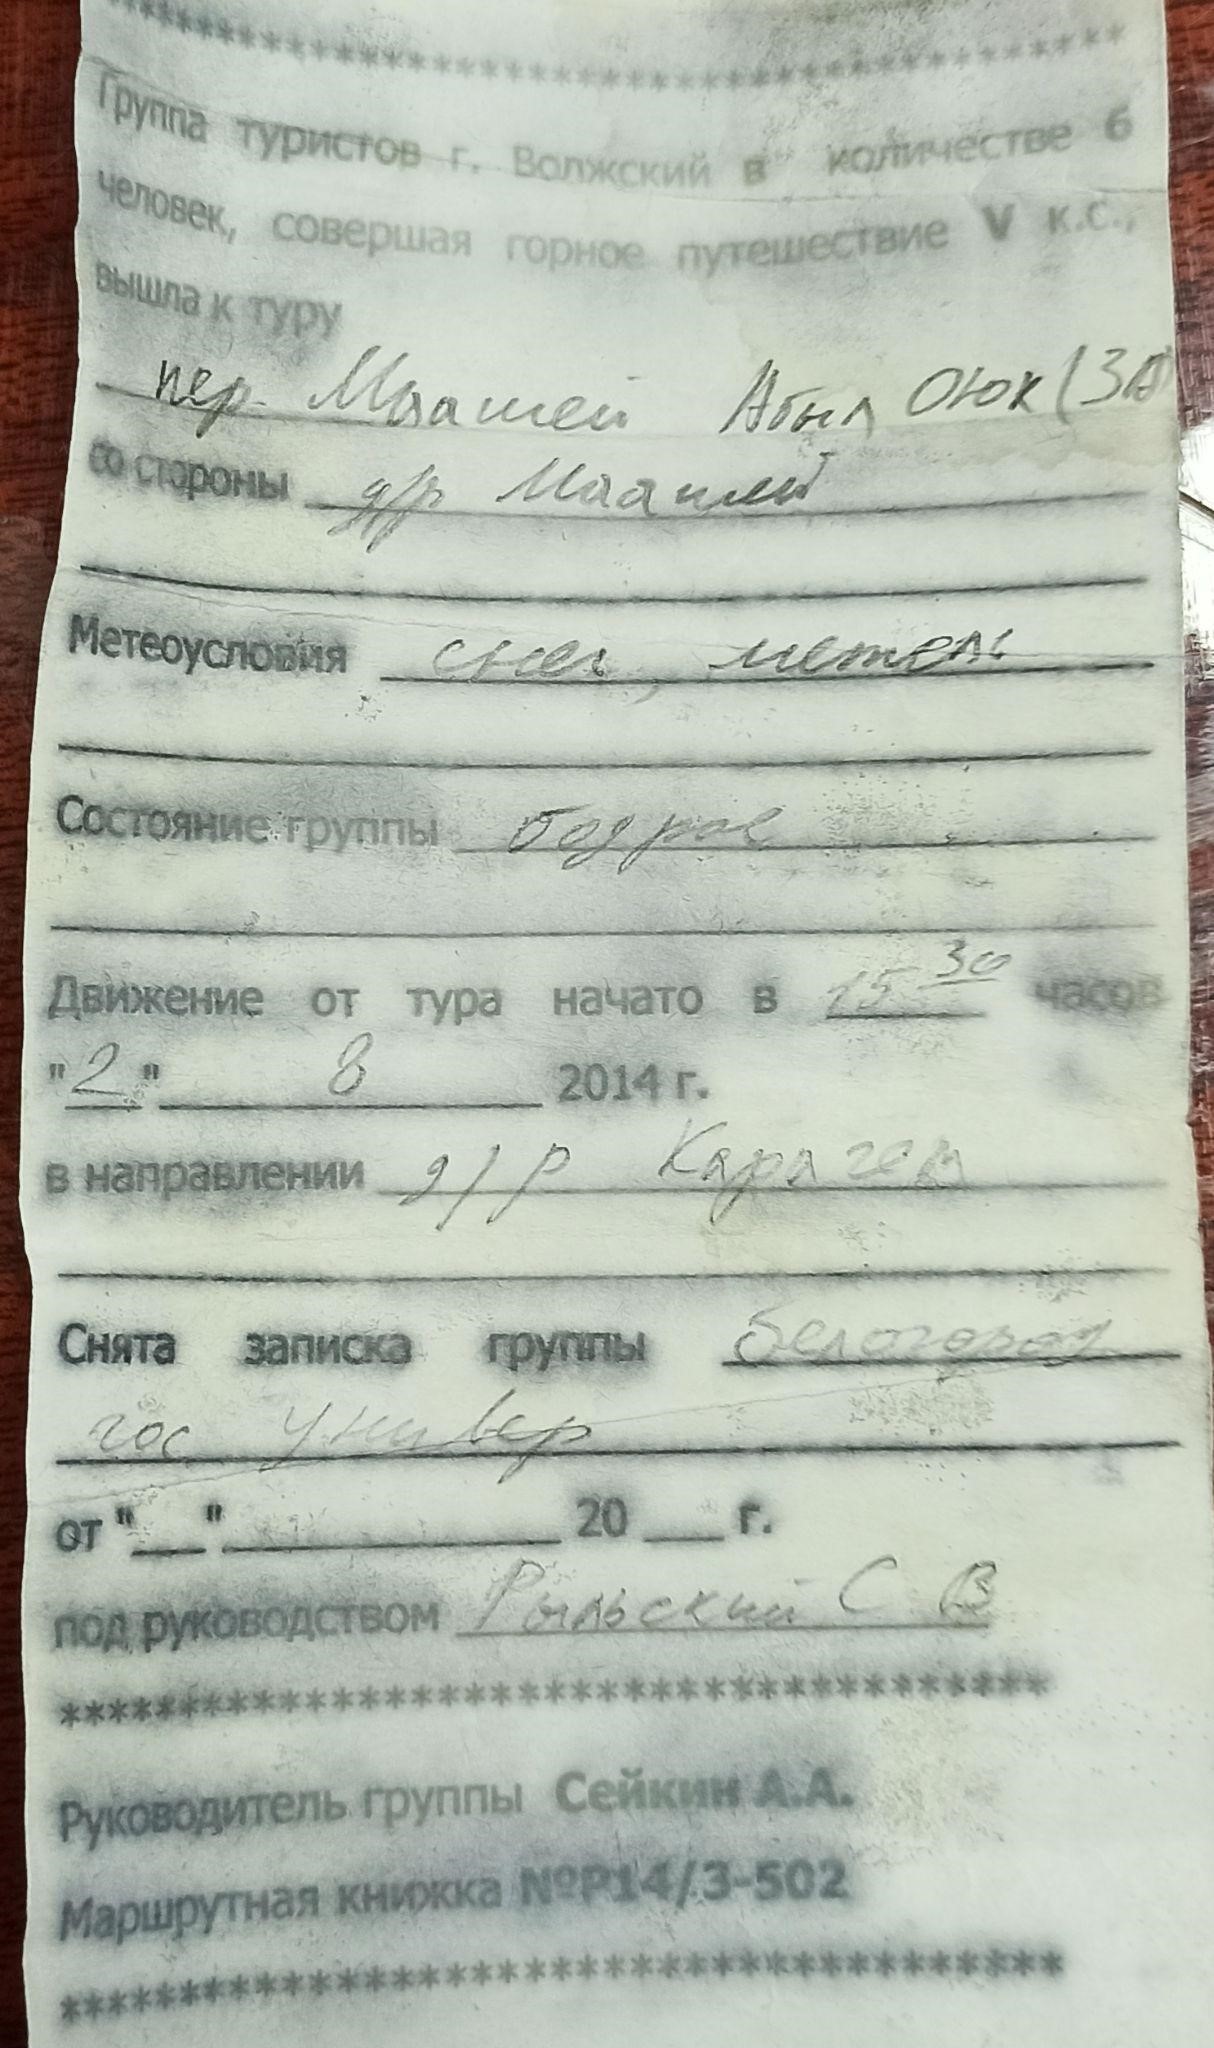 ************************************
Группа туристов г. Волжский в количестве 6
человек, совершая горное путешествие V к.с.,
вышла к туру
пер. Маашей Абыл Оюк (3А)
со стороны д/р Маашей
Метеоусловия снег, метель
Состояние группы бодрое
Движение от тура начато в 15 30 часов
"2" 8 2014 г.
в направлении д/р Карагем
Снята записка группы Белогород
гос универ
от "___"______________ 20 ___ г.
под руководством Рыльский С В
****************************************
Руководитель группы Сейкин А.А.
Маршрутная книжка №Р14/3-502
****************************************